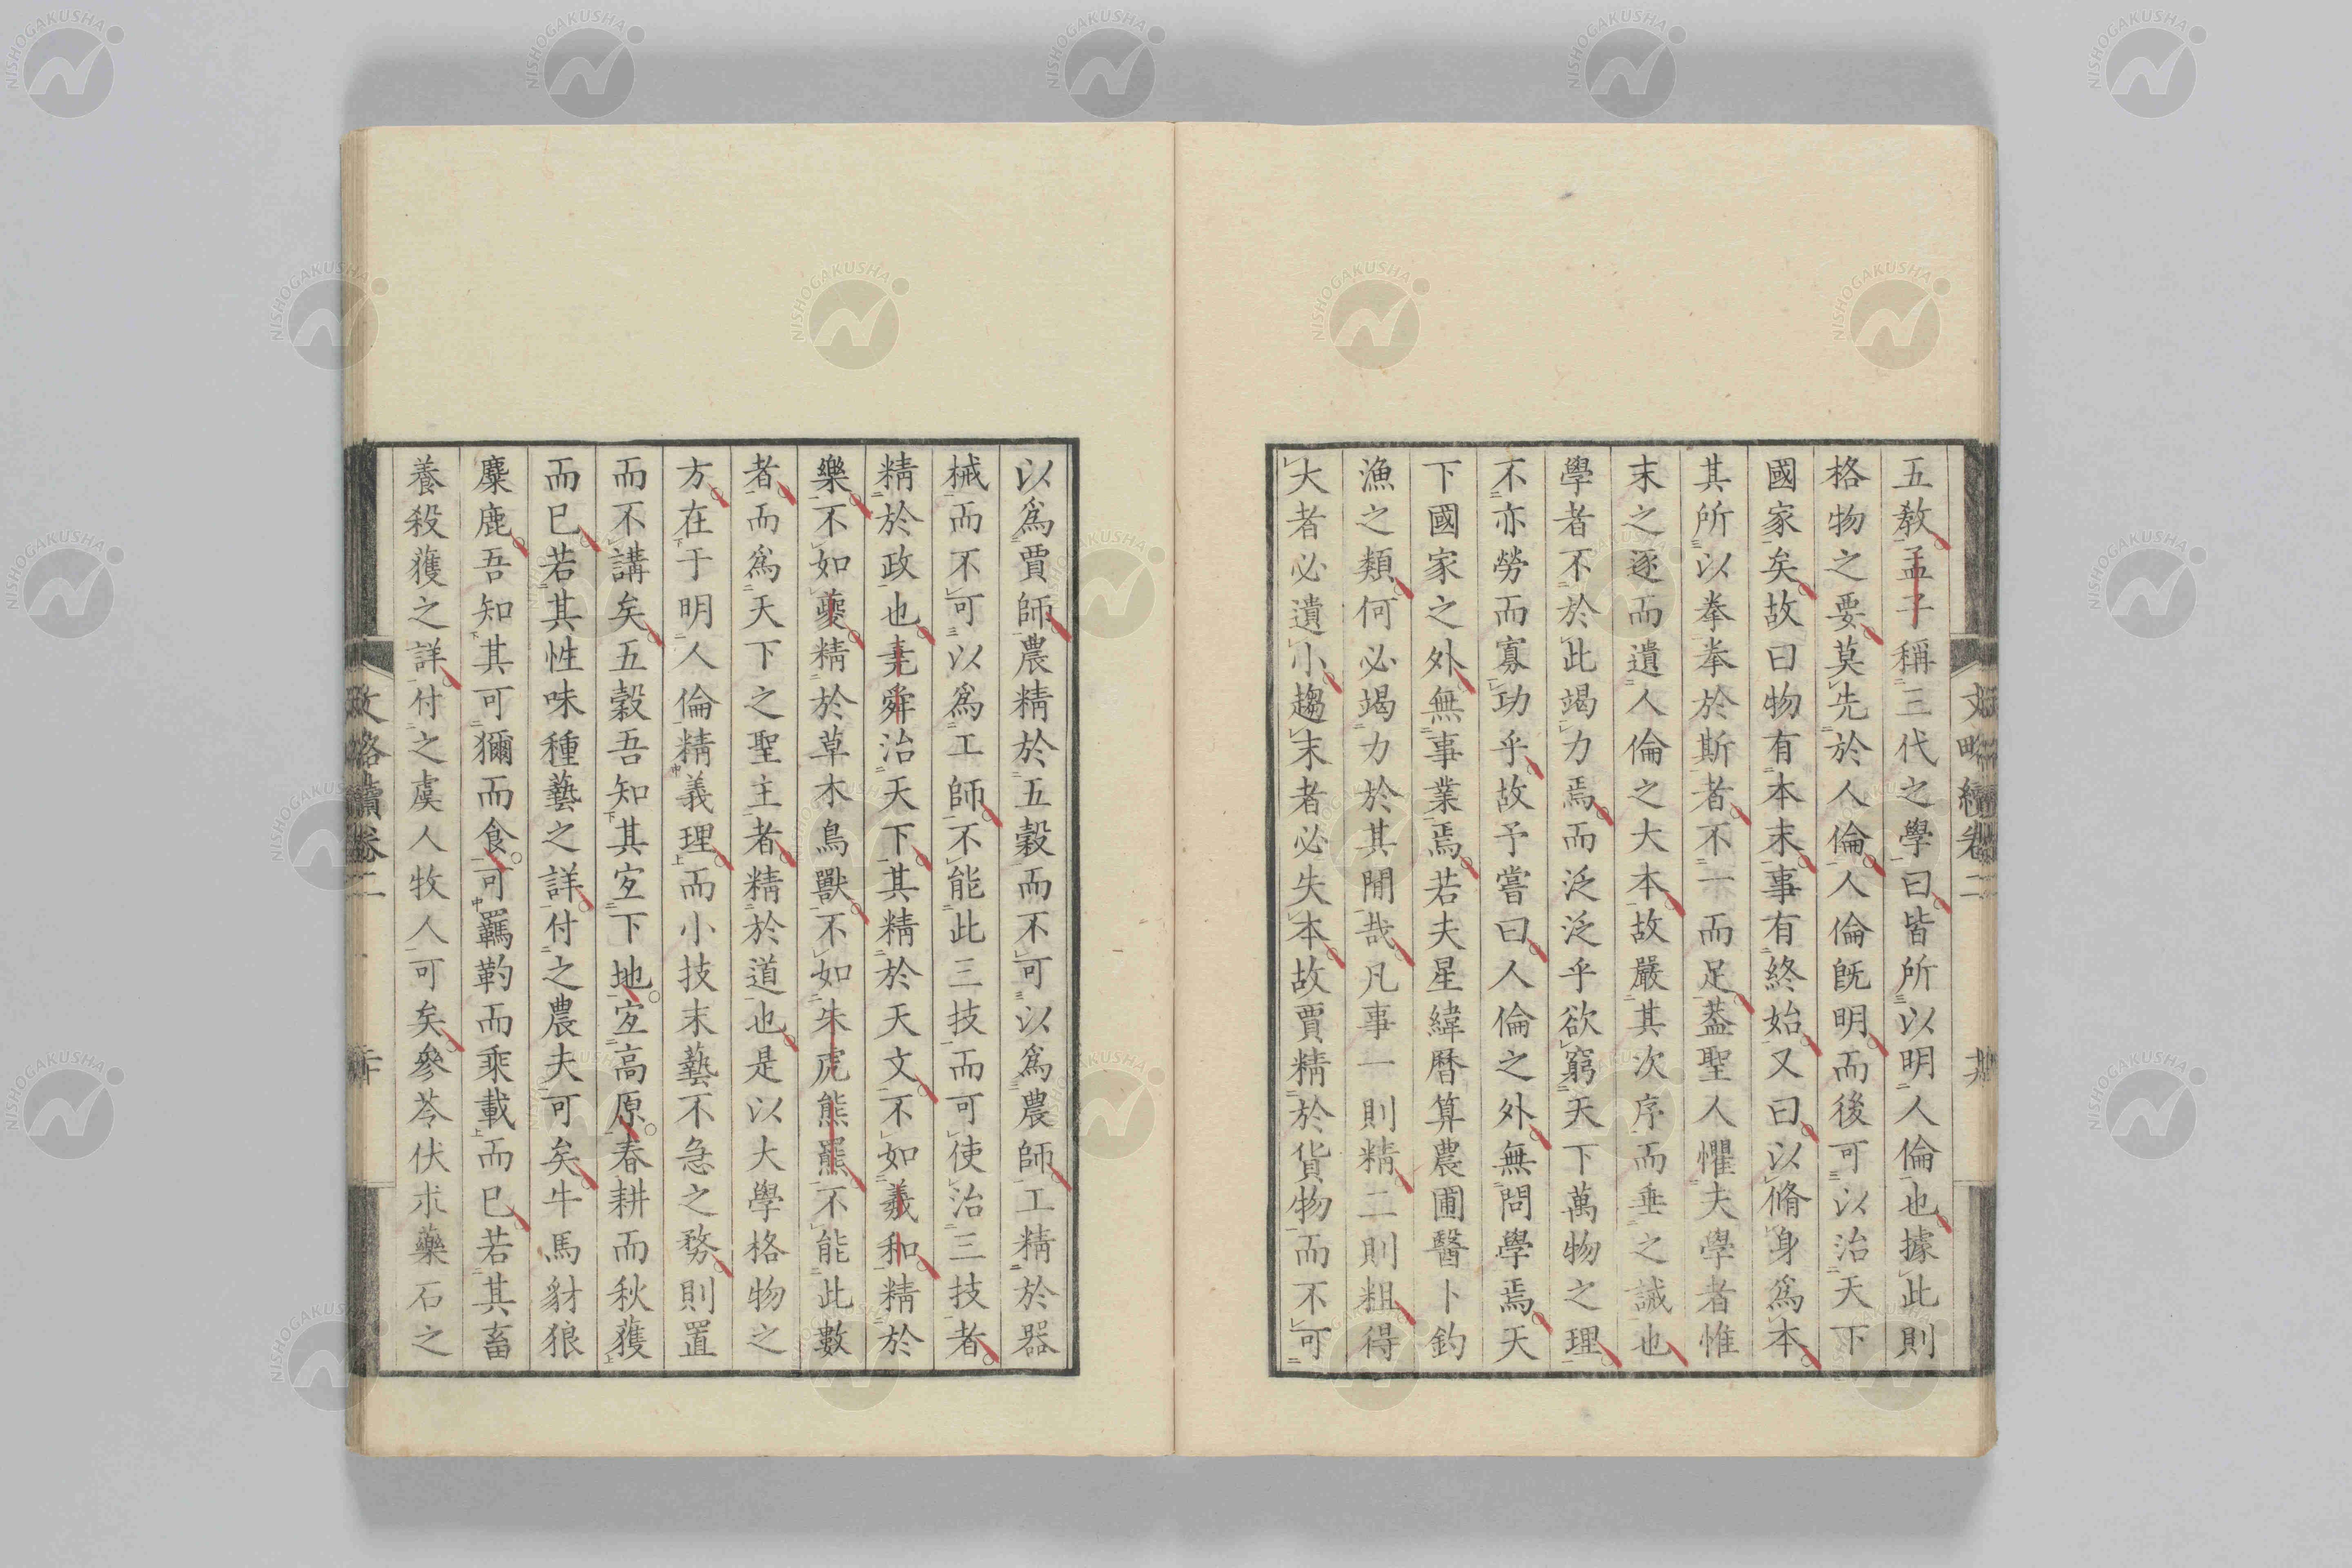 五敎孟子稱三代之學曰皆所以明人倫也據此則
格物之要莫先於人倫人倫旣明而後可以治天下
國家矣故曰物有本末事有終始又曰以脩身爲本
其所以拳拳於斯者不一而足蓋聖人懼夫學者惟
末之逐而遺人倫之大本故嚴其次序而垂之誡也
學者不於此竭力焉而泛泛乎欲窮天下萬物之理
不亦勞而寡功乎故予嘗曰人倫之外無問學焉天
下國家之外無事業焉若夫星緯曆算農圃醫卜釣
漁之類何必竭力於其閒哉凡事一則精二則粗得
大者必遺小趨末者必失本故賈精於貨物而不可
以爲賈師農精於五穀而不可以爲農師工精於器
械而不可以爲工師不能此三技而可使治三技者
精於政也堯舜治天下其精於天文不如羲和精於
樂不如夔精於草木鳥獸不如朱虎熊羆不能此數
者而爲天下之聖主者精於道也是以大學格物之
方在于明人倫精義理而小技末藝不急之務則置
而不講矣五穀吾知其宜下地宜高原春耕而秋穫
而已若其性味種藝之詳付之農夫可矣牛馬豺狼
麋鹿吾知其可獮而食可羈靮而乘載而已若其畜
養殺獲之詳付之虞人牧人可矣參苓伏朮藥石之
文略續卷二
文略續卷二